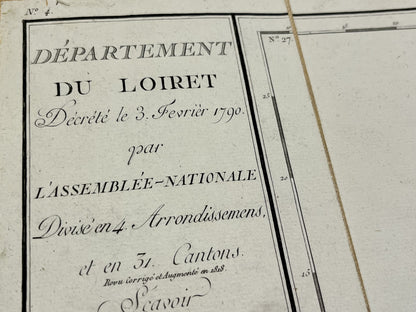 N.º 4.
DÉPARTEMENT
DU LOIRET
Décrété le 3. Fevrier 1790.
par
L'ASSEMBLÉE-NATIONALE
Divisé en 4. Arrondissemens,
et en 31. Cantons.
Revu Corrigé et Augmenté en 1818.
Sçavoir
N.º 27.
25
15